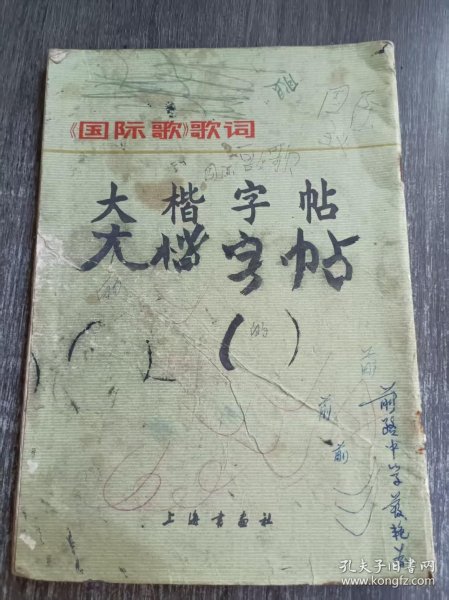 《国际歌》歌词
国际歌
大楷字帖
大楷字帖
的
( ) ( 的 )
前
前
前
前路中学
上海书画社
孔夫子旧书网
www.kongfz.com